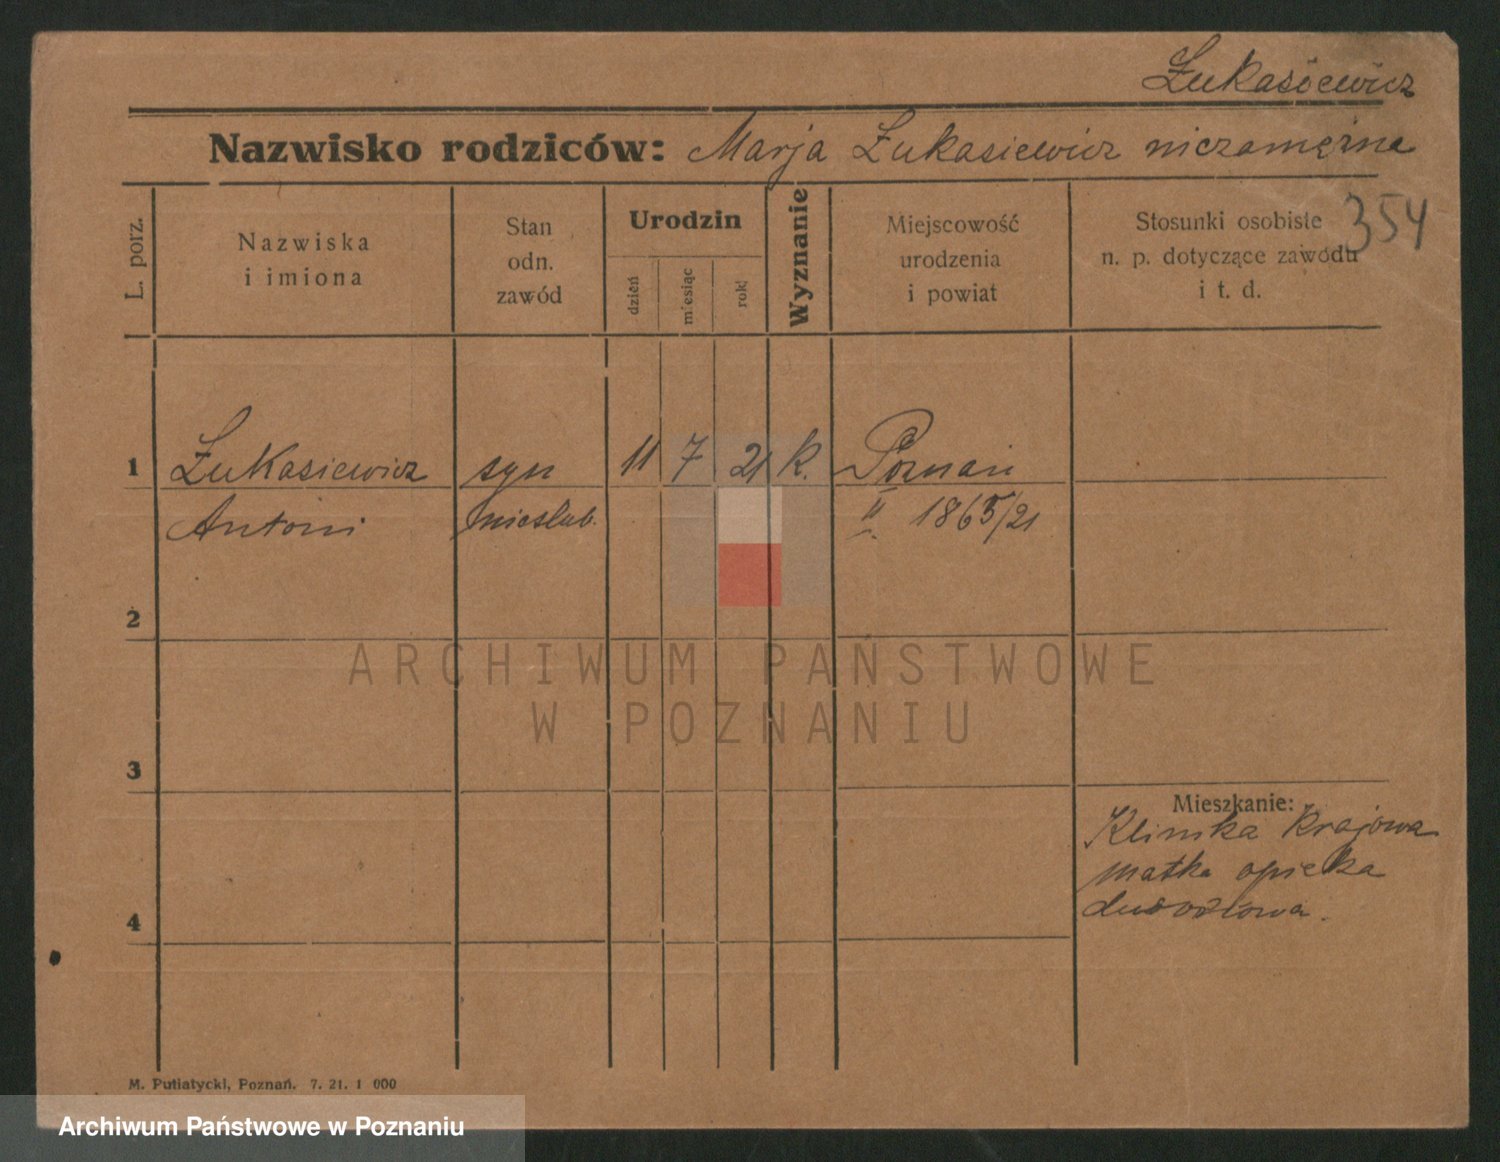 Łukasiewicz
Nazwisko rodziców: Marja Łukasiewicz niezamężna
354
L. porz.
Nazwiska
i imiona
Stan
odn.
zawód
Urodzin
dzień
miesiąc
rok
Wyznanie
Miejscowość
urodzenia
i powiat
Stosunki osobiste
n. p. dotyczące zawodu
i t. d.
1 Łukasiewicz syn 11 7 21 k. Poznań
Antoni nieślub. II 1865/21
2
3
4
Mieszkanie:
Klinika Krajowa
matka opieka
M. Putiatycki, Poznań. 7. 21. 1 000
ARCHIWUM PAŃSTWOWE
W POZNANIU
Archiwum Państwowe w Poznaniu